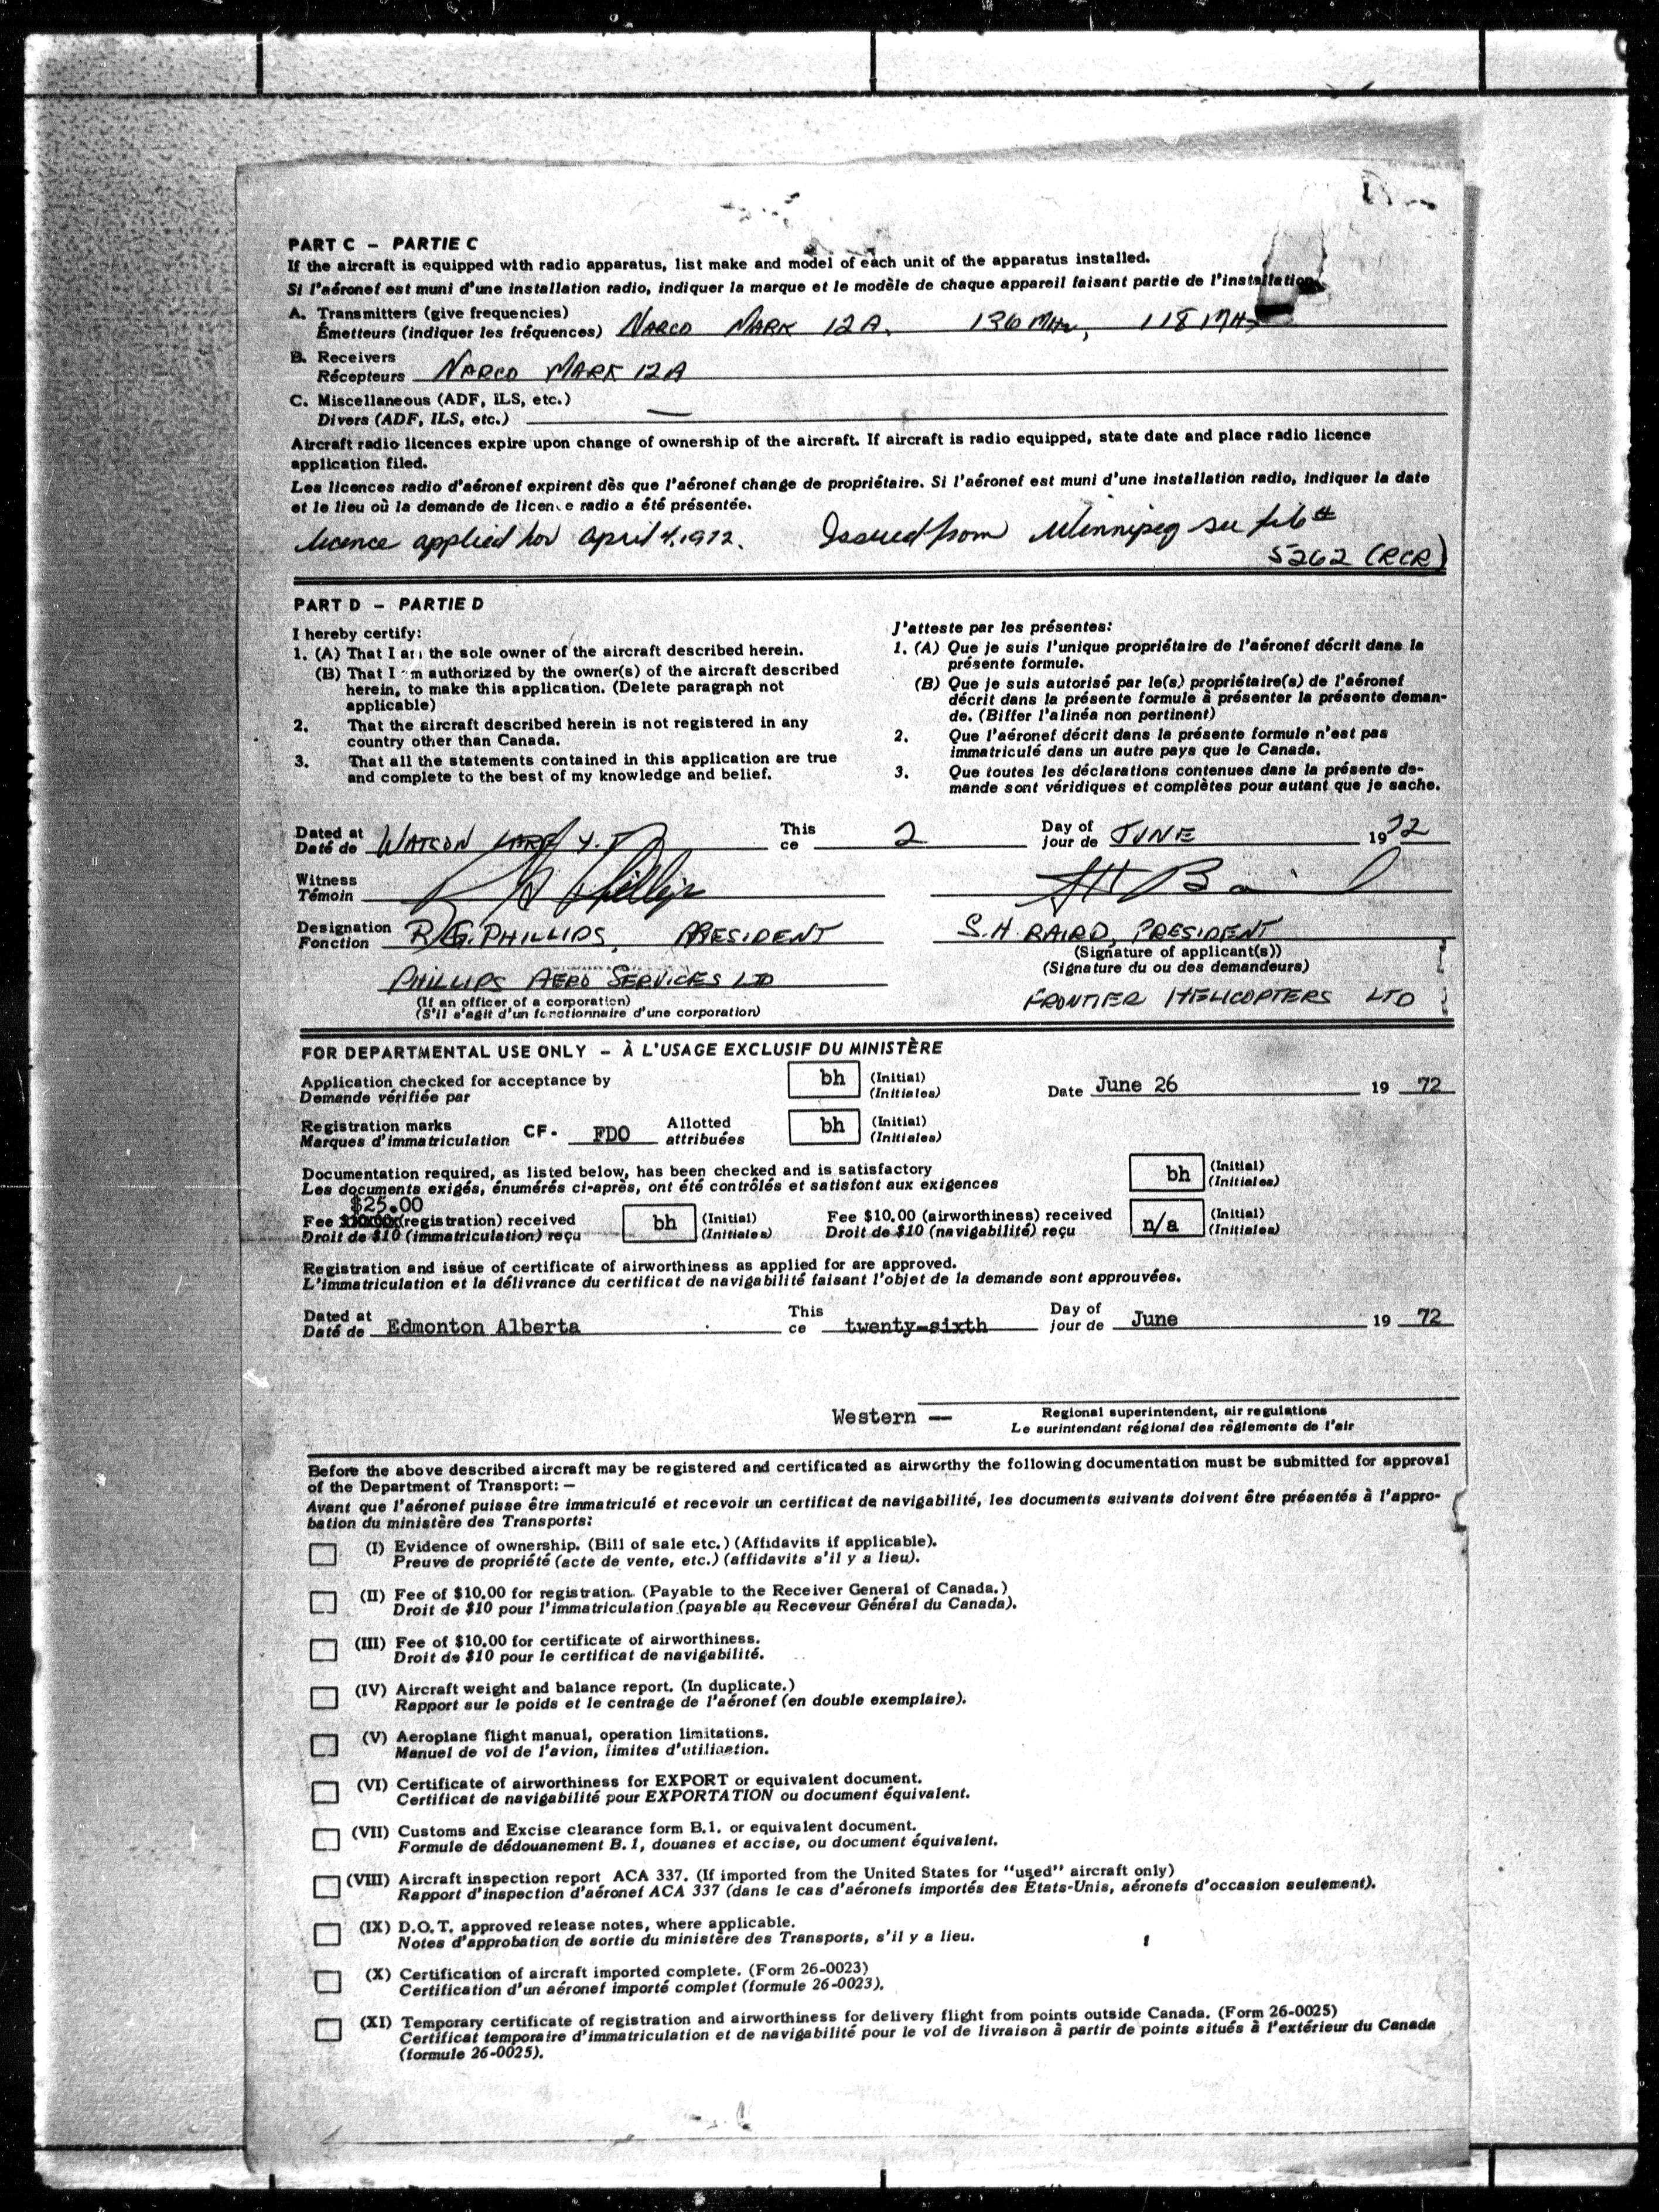 PART C – PARTIE C
If the aircraft is equipped with radio apparatus, list make and model of each unit of the apparatus installed.
Si l'aéronef est muni d'une installation radio, indiquer la marque et le modèle de chaque appareil faisant partie de l'installation.
A. Transmitters (give frequencies)
Émetteurs (indiquer les fréquences) NARCO MARK 12A. 136 MHz, 118 MHz
B. Receivers
Récepteurs NARCO MARK 12A
C. Miscellaneous (ADF, ILS, etc.)
Divers (ADF, ILS, etc.) —
Aircraft radio licences expire upon change of ownership of the aircraft. If aircraft is radio equipped, state date and place radio licence
application filed.
Les licences radio d'aéronef expirent dès que l'aéronef change de propriétaire. Si l'aéronef est muni d'une installation radio, indiquer la date
et le lieu où la demande de licence radio a été présentée.
licence applied for April 4, 1972. Issued from Winnipeg see file #
5262 (RCR)
PART D – PARTIE D
I hereby certify:
1. (A) That I am the sole owner of the aircraft described herein.
(B) That I am authorized by the owner(s) of the aircraft described
herein, to make this application. (Delete paragraph not
applicable)
2. That the aircraft described herein is not registered in any
country other than Canada.
3. That all the statements contained in this application are true
and complete to the best of my knowledge and belief.
J'atteste par les présentes:
1. (A) Que je suis l'unique propriétaire de l'aéronef décrit dans la
présente formule.
(B) Que je suis autorisé par le(s) propriétaire(s) de l'aéronef
décrit dans la présente formule à présenter la présente deman-
de. (Biffer l'alinéa non pertinent)
2. Que l'aéronef décrit dans la présente formule n'est pas
immatriculé dans un autre pays que le Canada.
3. Que toutes les déclarations contenues dans la présente de-
mande sont véridiques et complètes pour autant que je sache.
Dated at This Day of
Daté de WATSON LAKE Y.T. ce 2 jour de JUNE 1972
Witness
Témoin
Designation
Fonction R.G. PHILLIPS, PRESIDENT S.H. BAIRD, PRESIDENT
(Signature of applicant(s))
(Signature du ou des demandeurs)
PHILLIPS AERO SERVICES LTD
(If an officer of a corporation)
(S'il s'agit d'un fonctionnaire d'une corporation)
FRONTIER HELICOPTERS LTD
FOR DEPARTMENTAL USE ONLY – À L'USAGE EXCLUSIF DU MINISTÈRE
Application checked for acceptance by bh (Initial) Date June 26 19 72
Demande vérifiée par (Initiales)
Registration marks CF- FDO Allotted bh (Initial)
Marques d'immatriculation attribuées (Initiales)
Documentation required, as listed below, has been checked and is satisfactory bh (Initial)
Les documents exigés, énumérés ci-après, ont été contrôlés et satisfont aux exigences (Initiales)
$25.00
Fee (registration) received bh (Initial) Fee $10.00 (airworthiness) received n/a (Initial)
Droit de $10 (immatriculation) reçu (Initiales) Droit de $10 (navigabilité) reçu (Initiales)
Registration and issue of certificate of airworthiness as applied for are approved.
L'immatriculation et la délivrance du certificat de navigabilité faisant l'objet de la demande sont approuvées.
Dated at This Day of
Daté de Edmonton Alberta ce twenty-sixth jour de June 19 72
Western — Regional superintendent, air regulations
Le surintendant régional des règlements de l'air
Before the above described aircraft may be registered and certificated as airworthy the following documentation must be submitted for approval
of the Department of Transport: –
Avant que l'aéronef puisse être immatriculé et recevoir un certificat de navigabilité, les documents suivants doivent être présentés à l'appro-
bation du ministère des Transports:
(I) Evidence of ownership. (Bill of sale etc.) (Affidavits if applicable).
Preuve de propriété (acte de vente, etc.) (affidavits s'il y a lieu).
(II) Fee of $10.00 for registration. (Payable to the Receiver General of Canada.)
Droit de $10 pour l'immatriculation (payable au Receveur Général du Canada).
(III) Fee of $10.00 for certificate of airworthiness.
Droit de $10 pour le certificat de navigabilité.
(IV) Aircraft weight and balance report. (In duplicate.)
Rapport sur le poids et le centrage de l'aéronef (en double exemplaire).
(V) Aeroplane flight manual, operation limitations.
Manuel de vol de l'avion, limites d'utilisation.
(VI) Certificate of airworthiness for EXPORT or equivalent document.
Certificat de navigabilité pour EXPORTATION ou document équivalent.
(VII) Customs and Excise clearance form B.1. or equivalent document.
Formule de dédouanement B.1, douanes et accise, ou document équivalent.
(VIII) Aircraft inspection report ACA 337. (If imported from the United States for "used" aircraft only)
Rapport d'inspection d'aéronef ACA 337 (dans le cas d'aéronefs importés des États-Unis, aéronefs d'occasion seulement).
(IX) D.O.T. approved release notes, where applicable.
Notes d'approbation de sortie du ministère des Transports, s'il y a lieu.
(X) Certification of aircraft imported complete. (Form 26-0023)
Certification d'un aéronef importé complet (formule 26-0023).
(XI) Temporary certificate of registration and airworthiness for delivery flight from points outside Canada. (Form 26-0025)
Certificat temporaire d'immatriculation et de navigabilité pour le vol de livraison à partir de points situés à l'extérieur du Canada
(formule 26-0025).